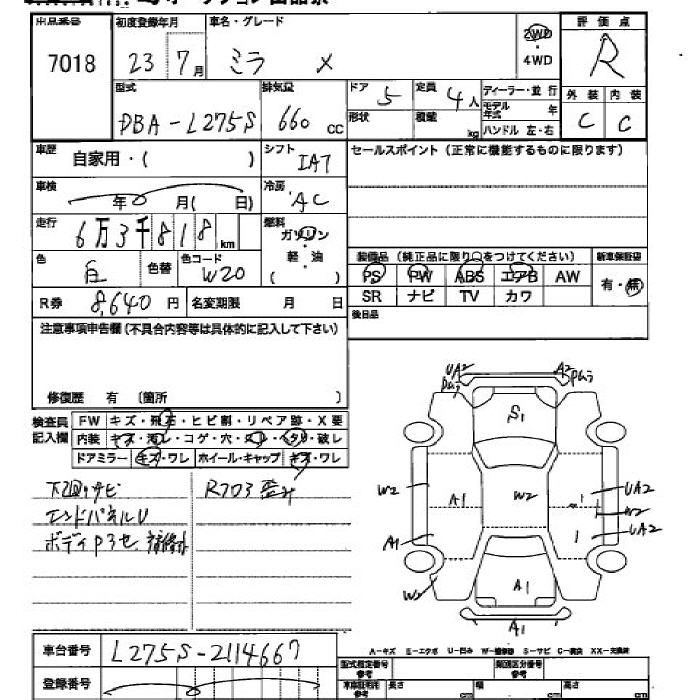 出品番号 初度登録年月 車名・グレード 2WD・4WD 評価点
7018 23年7月 ミラ X R
型式 排気量 ドア 5 定員 4人 ディーラー・並行 外装 内装
DBA-L275S 660cc 形状 積載 kg モデル年式 年 C C
ハンドル 左・右
車歴 自家用・( ) シフト IAT セールスポイント(正常に機能するものに限ります)
車検 年 月( 日) 冷房 AC
走行 6万3千818km 燃料 ガソリン 軽・油 ( )
装備品(純正品に限り○をつけてください) 新車保証書
色 白 色替 色コード W20 PS PW ABS エアB AW 有・無
R券 8,640円 名変期限 月 日 SR ナビ TV カワ
注意事項申告欄(不具合内容等は具体的に記入して下さい) 後日品
修復歴 有 〔箇所 〕
検査員記入欄 FW キズ・飛石・ヒビ割・リペア跡・X要
内装 キズ・汚レ・コゲ・穴・スレ・ヘタリ・破レ
ドアミラー キズ・ワレ ホイール・キャップ キズ・ワレ
下回りサビ R703歪み
エンドパネルU
ボディP3セ 補修
UA2 A2
S1
W2 A1 W2 UA2
W2
A1 UA2
W2 A1
A1
車台番号 L275S-2114667
A-キズ E-エクボ U-凹み W-補修跡 S-サビ C-腐食 XX-交換済
登録番号 参考 参考 型式指定番号 類別区分番号
長さ cm 幅 cm 高さ cm